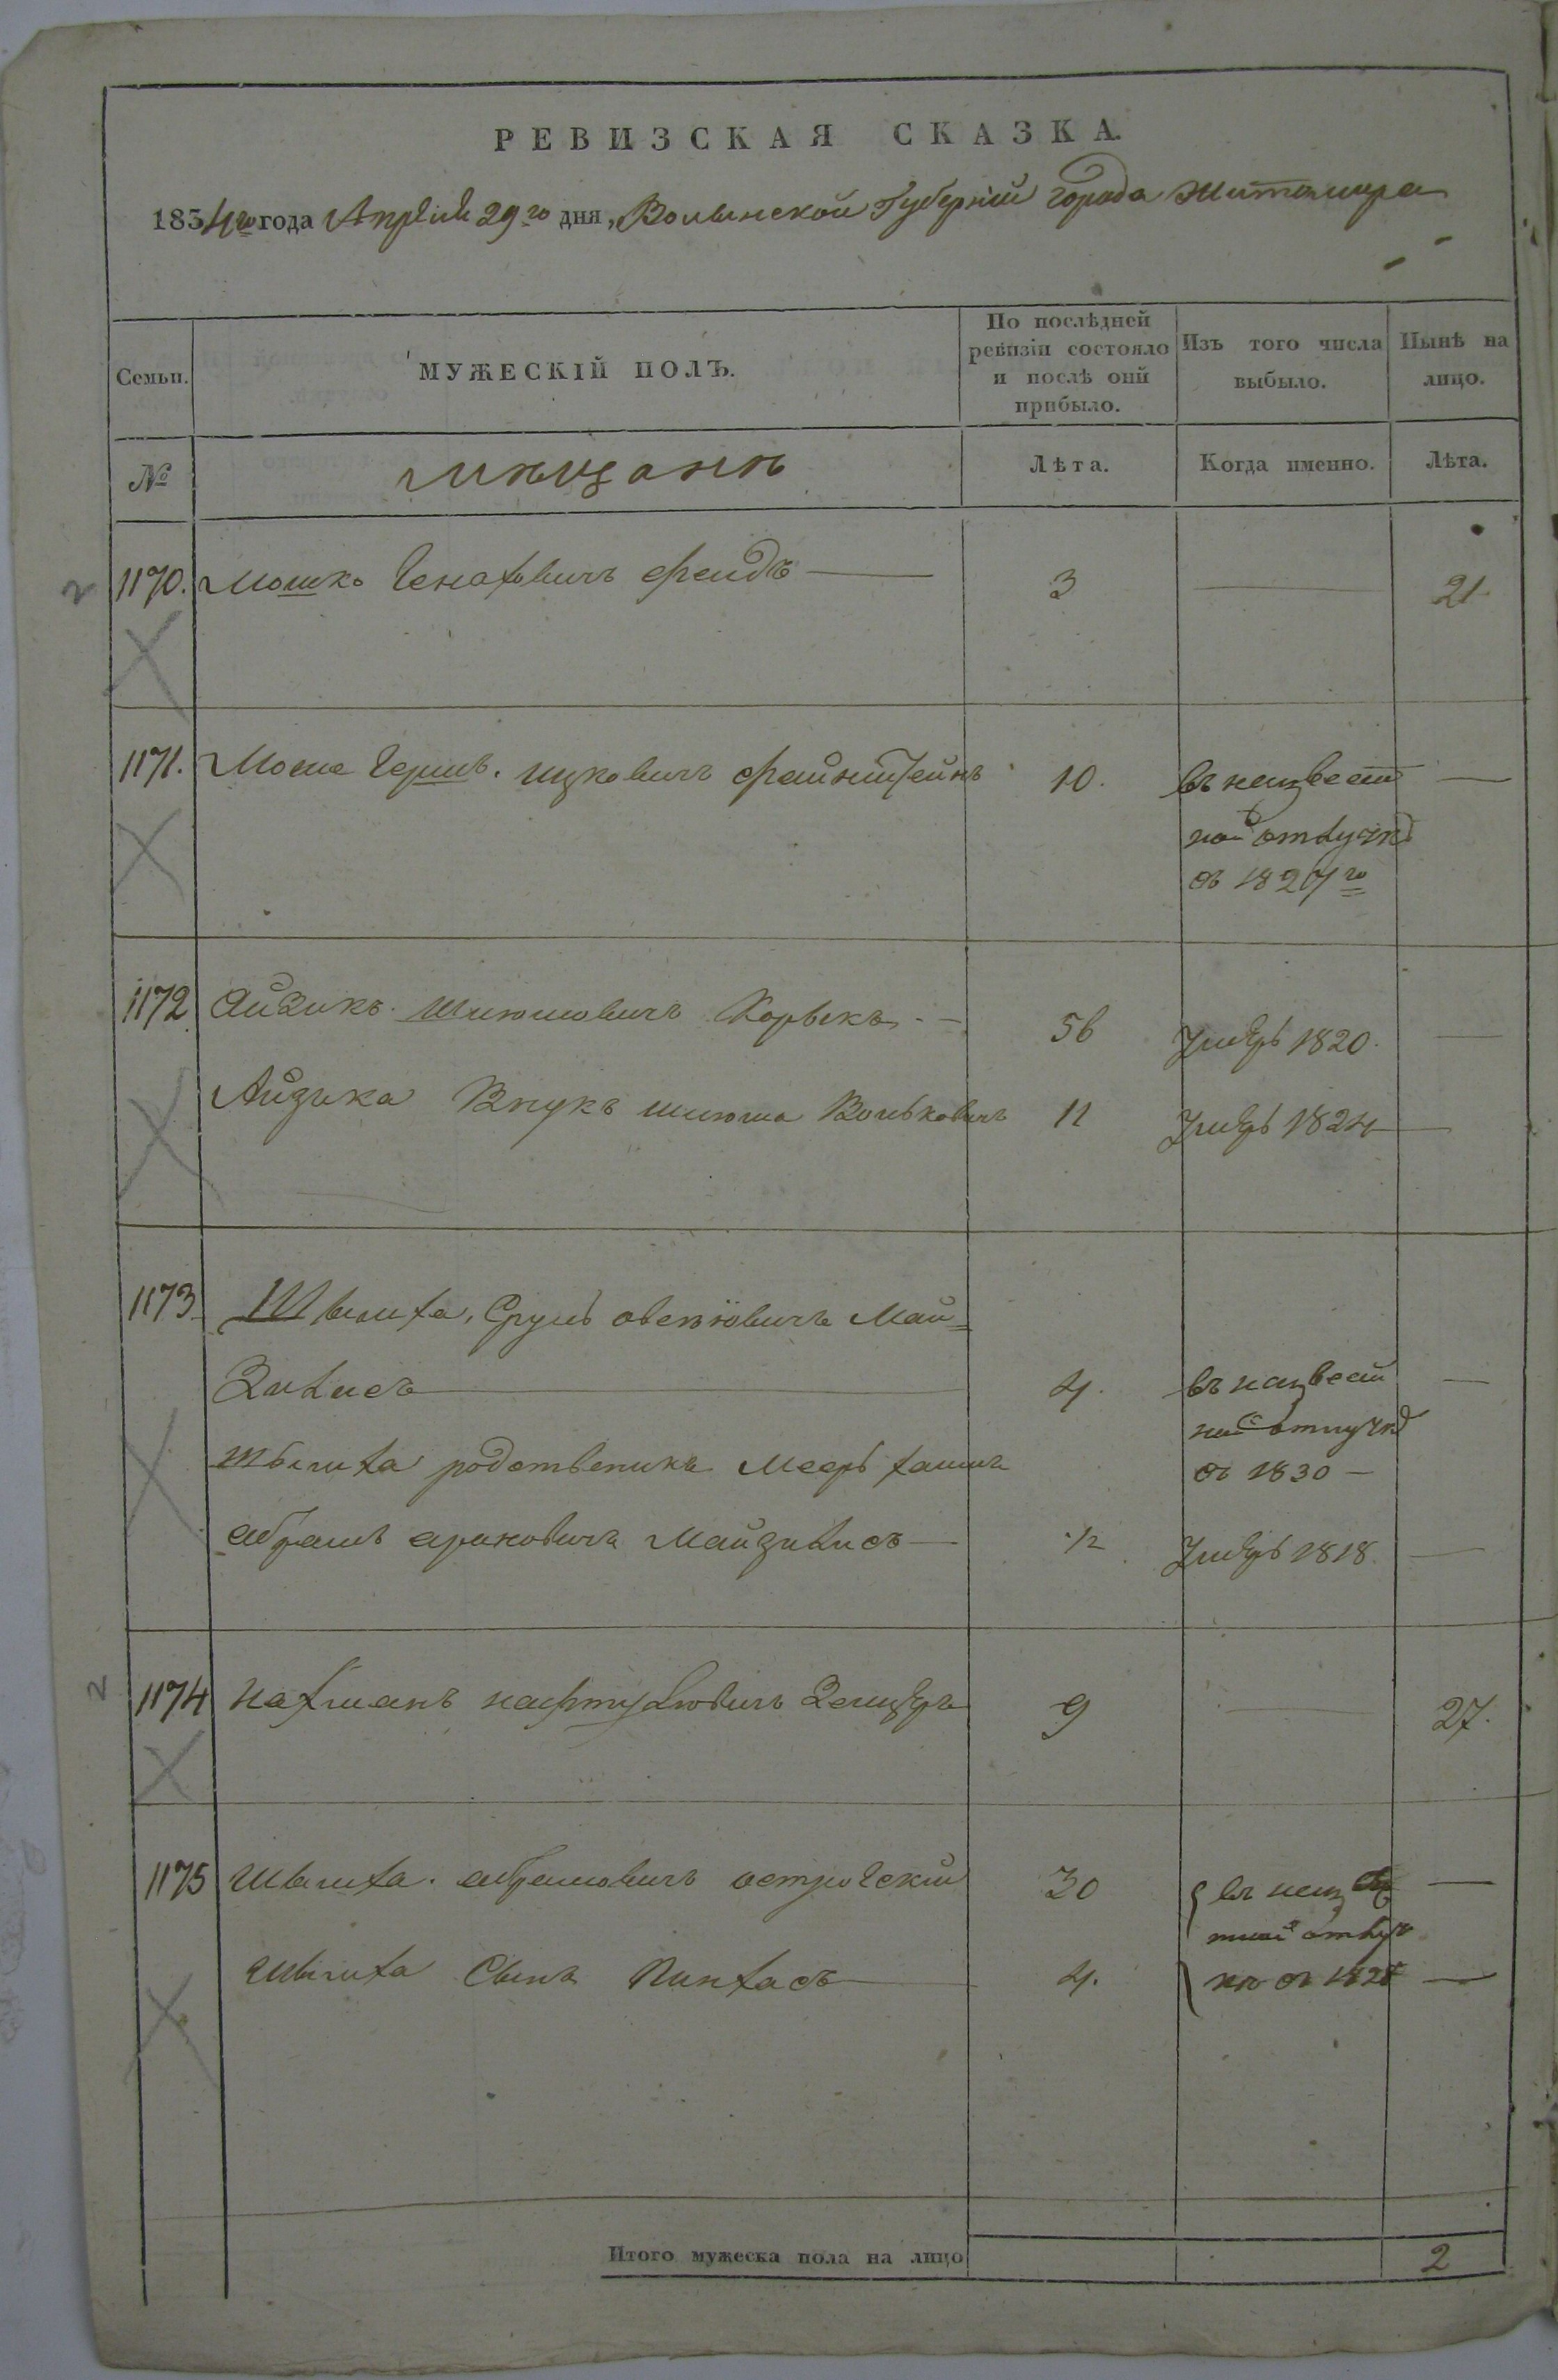 РЕВИЗСКАЯ СКАЗКА.
1834го года Апреля 29го дня, Волынской Губернии города Житомира
Семьи.
МУЖЕСКІЙ ПОЛЪ.
По послѣдней ревизіи состояло и послѣ оній прибыло.
Изъ того числа выбыло.
Нынѣ на лицо.
№
мѣщанѣ
Лѣта.
Когда именно.
Лѣта.
2 1170. Мошко Генаховичъ Фендъ 3 21
1171. Моше Гершъ. Ицковичъ Файнштейнъ 10. въ неизвест
ной отлучкѣ
съ 1827го
1172 Айзикъ Шлюмовичъ 56 умеръ 1820.
Айзика Внукъ Шлюма Вольковичъ 11 умеръ 1824
1173 Шмылха, Сруль Май=
зилисъ 4. въ неизвест
ной отлучкѣ
съ 1830
родственикъ Мееръ Хаимъ
Абрамъ Ароновичъ Майзилисъ 1/2 умеръ 1818.
2 1174 Нахманъ Нафтулювичъ Зельцеръ 9 27.
1175 Шмылха. Абрамовичъ Острогскій 30 въ неизвѣс
тной отлуч
Шмылха Сынъ Пинхасъ 4. кѣ съ 1828
Итого мужеска пола на лицо 2